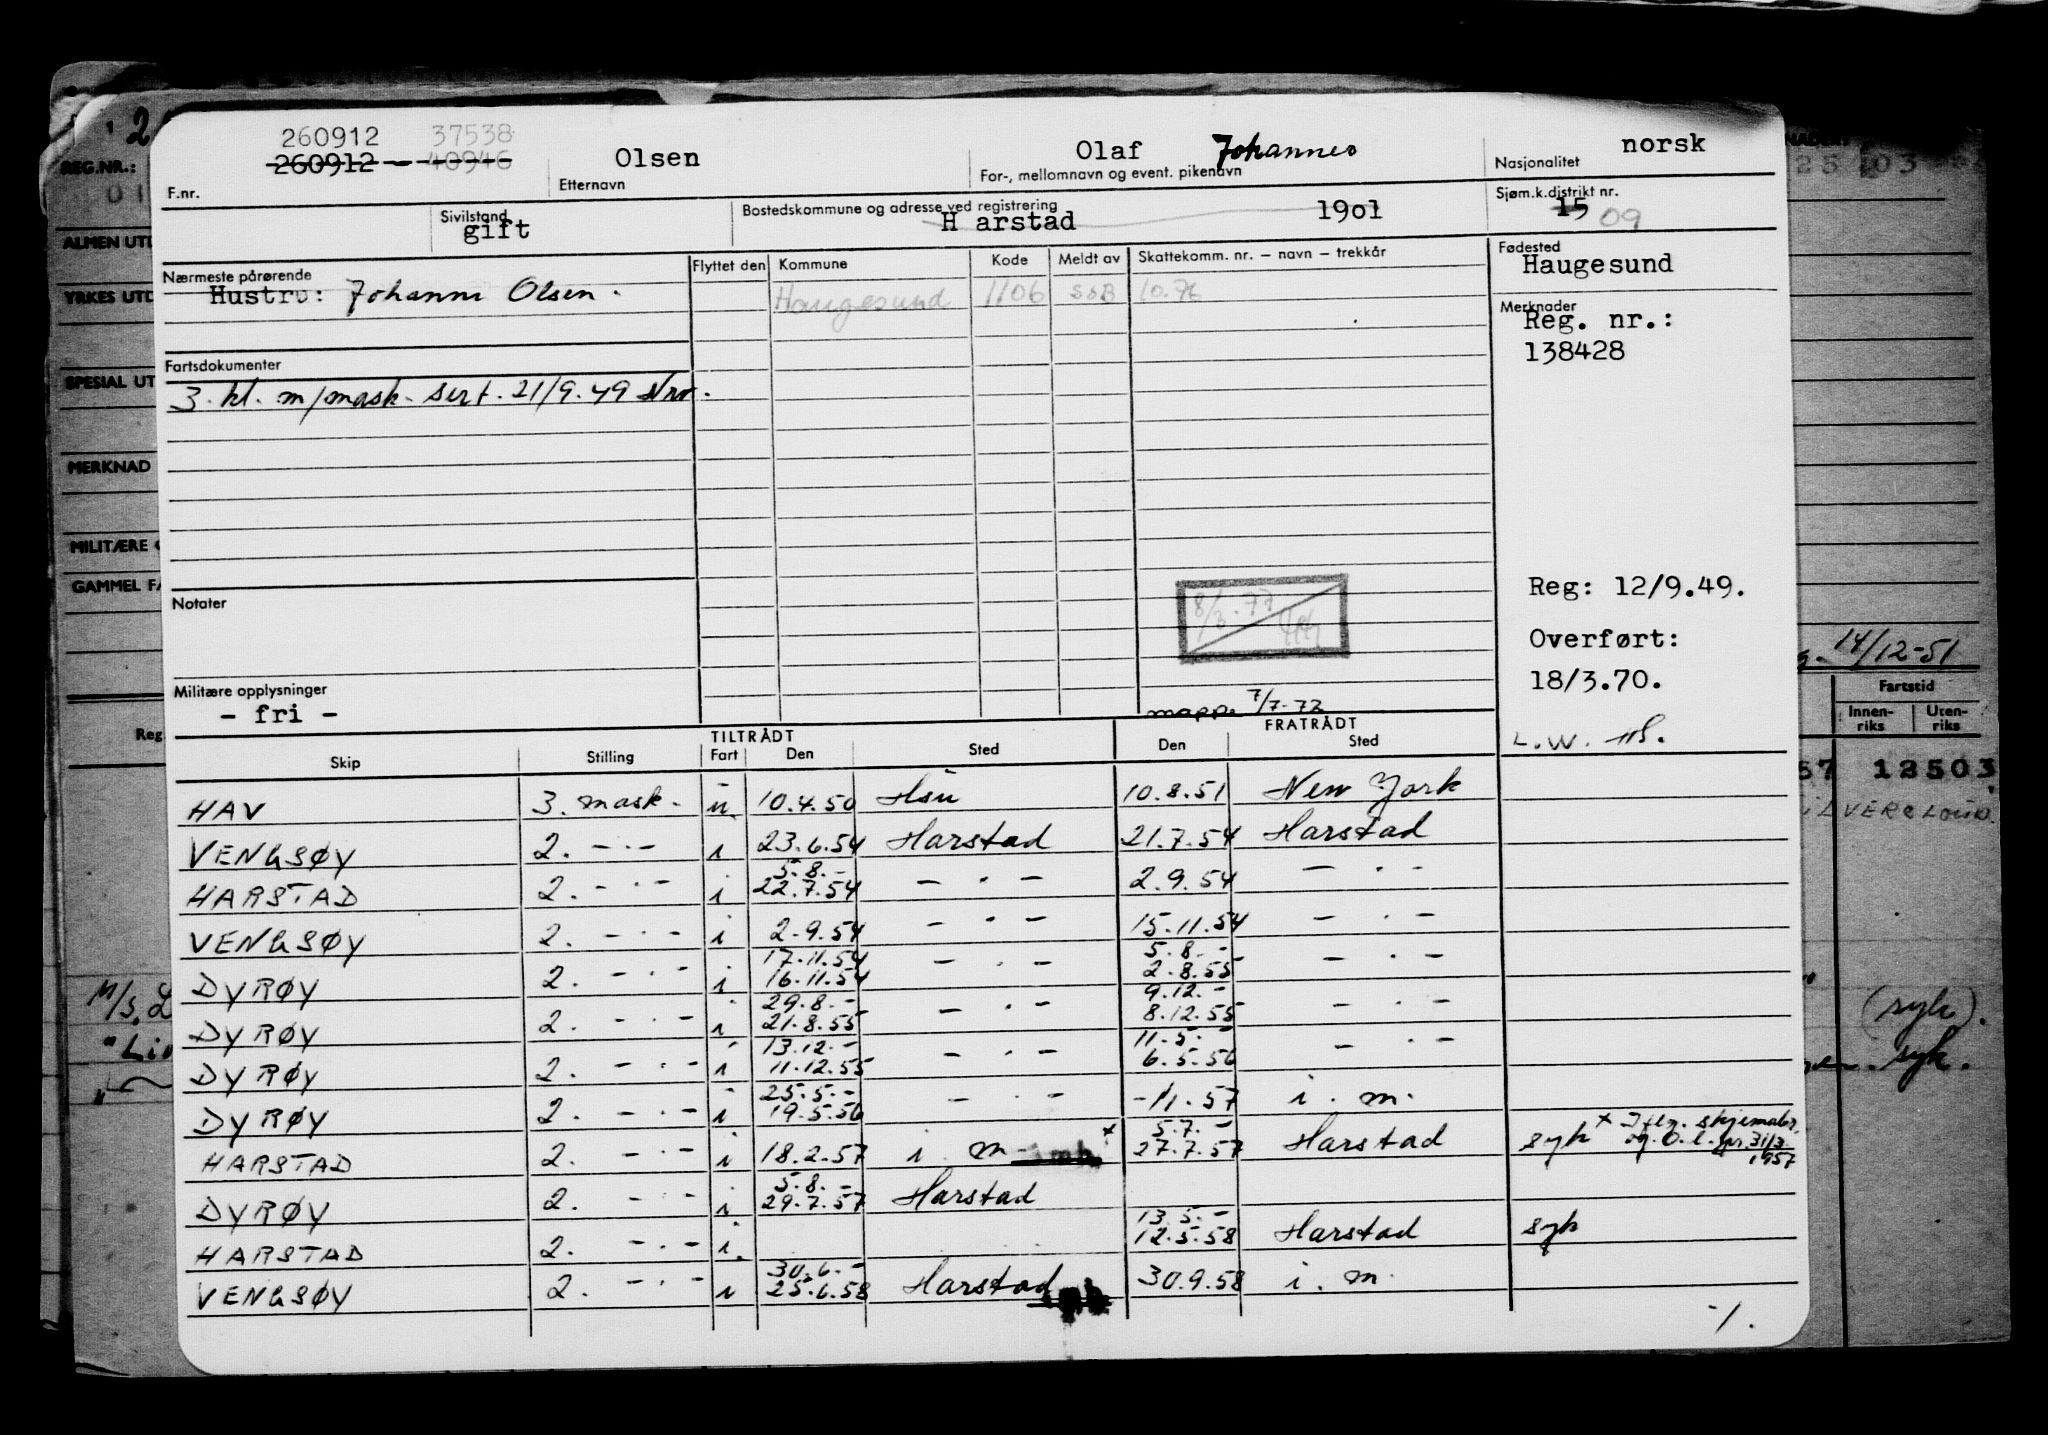 260912 37538
260912 - - - 40946 Olsen Olaf Johannes norsk
F.nr. Etternavn For-, mellomnavn og event. pikenavn Nasjonalitet
Sivilstand Bostedskommune og adresse ved registrering Sjøm.k.distrikt nr.
gift H arstad 1901 15 09
Nærmeste pårørende Flyttet den Kommune Kode Meldt av Skattekomm. nr. – navn – trekkår Fødested
Hustru: Johanne Olsen. Haugesund 1106 SSB 10.76 Haugesund
Merknader
Reg. nr.:
138428
Fartsdokumenter
3. kl. m/mask. sert. 21/9.49 Nro.
Notater
8/3.77
Reg: 12/9.49.
Overført:
18/3.70.
L.W.
Militære opplysninger
- fri -
mapp. 7/7-72
TILTRÅDT FRATRÅDT
Skip Stilling Fart Den Sted Den Sted
HAV 3. mask. u 10.4.50 Hsu 10.8.51 New York
VENGSØY 2. - . - i 23.6.54 Harstad 21.7.54 Harstad
5.8.-
HARSTAD 2. - . - i 22.7.54 - . - 2.9.54 - . -
VENGSØY 2. - . - i 2.9.54 - . - 15.11.54 - . -
17.11.54 5.8.-
DYRØY 2. - . - i 16.11.54 - . - 2.8.55 - . -
29.8.- 9.12.-
DYRØY 2. - . - i 21.8.55 - . - 8.12.55 - . -
13.12.- 11.5.-
DYRØY 2. - . - i 11.12.55 - . - 6.5.56 - . -
25.5.-
DYRØY 2. - . - i 19.5.56 - . - -11.57 i. m.
5.7.-
HARSTAD 2. - . - i 18.2.57 i. m x 27.7.57 Harstad syk x Iflg. skjemabr. og O.l. pr. 31/3 1957
5.8.-
DYRØY 2. - . - i 29.7.57 Harstad
13.5.-
HARSTAD 2. - . - i. 12.5.58 Harstad syk
30.6.-
VENGSØY 2. - . - i 25.6.58 Harstad 30.9.58 i. m.
-1.
1 2
REG.NR.:
01
ALMEN UTD
YRKES UTD
SPESIAL UT
MERKNAD
MILITÆRE
GAMMEL FA
Reg.
M/S. L
"Li
25 103
14/12-51
Fartstid
Innen-riks Uten-riks
57 12503
(syk).
syk.